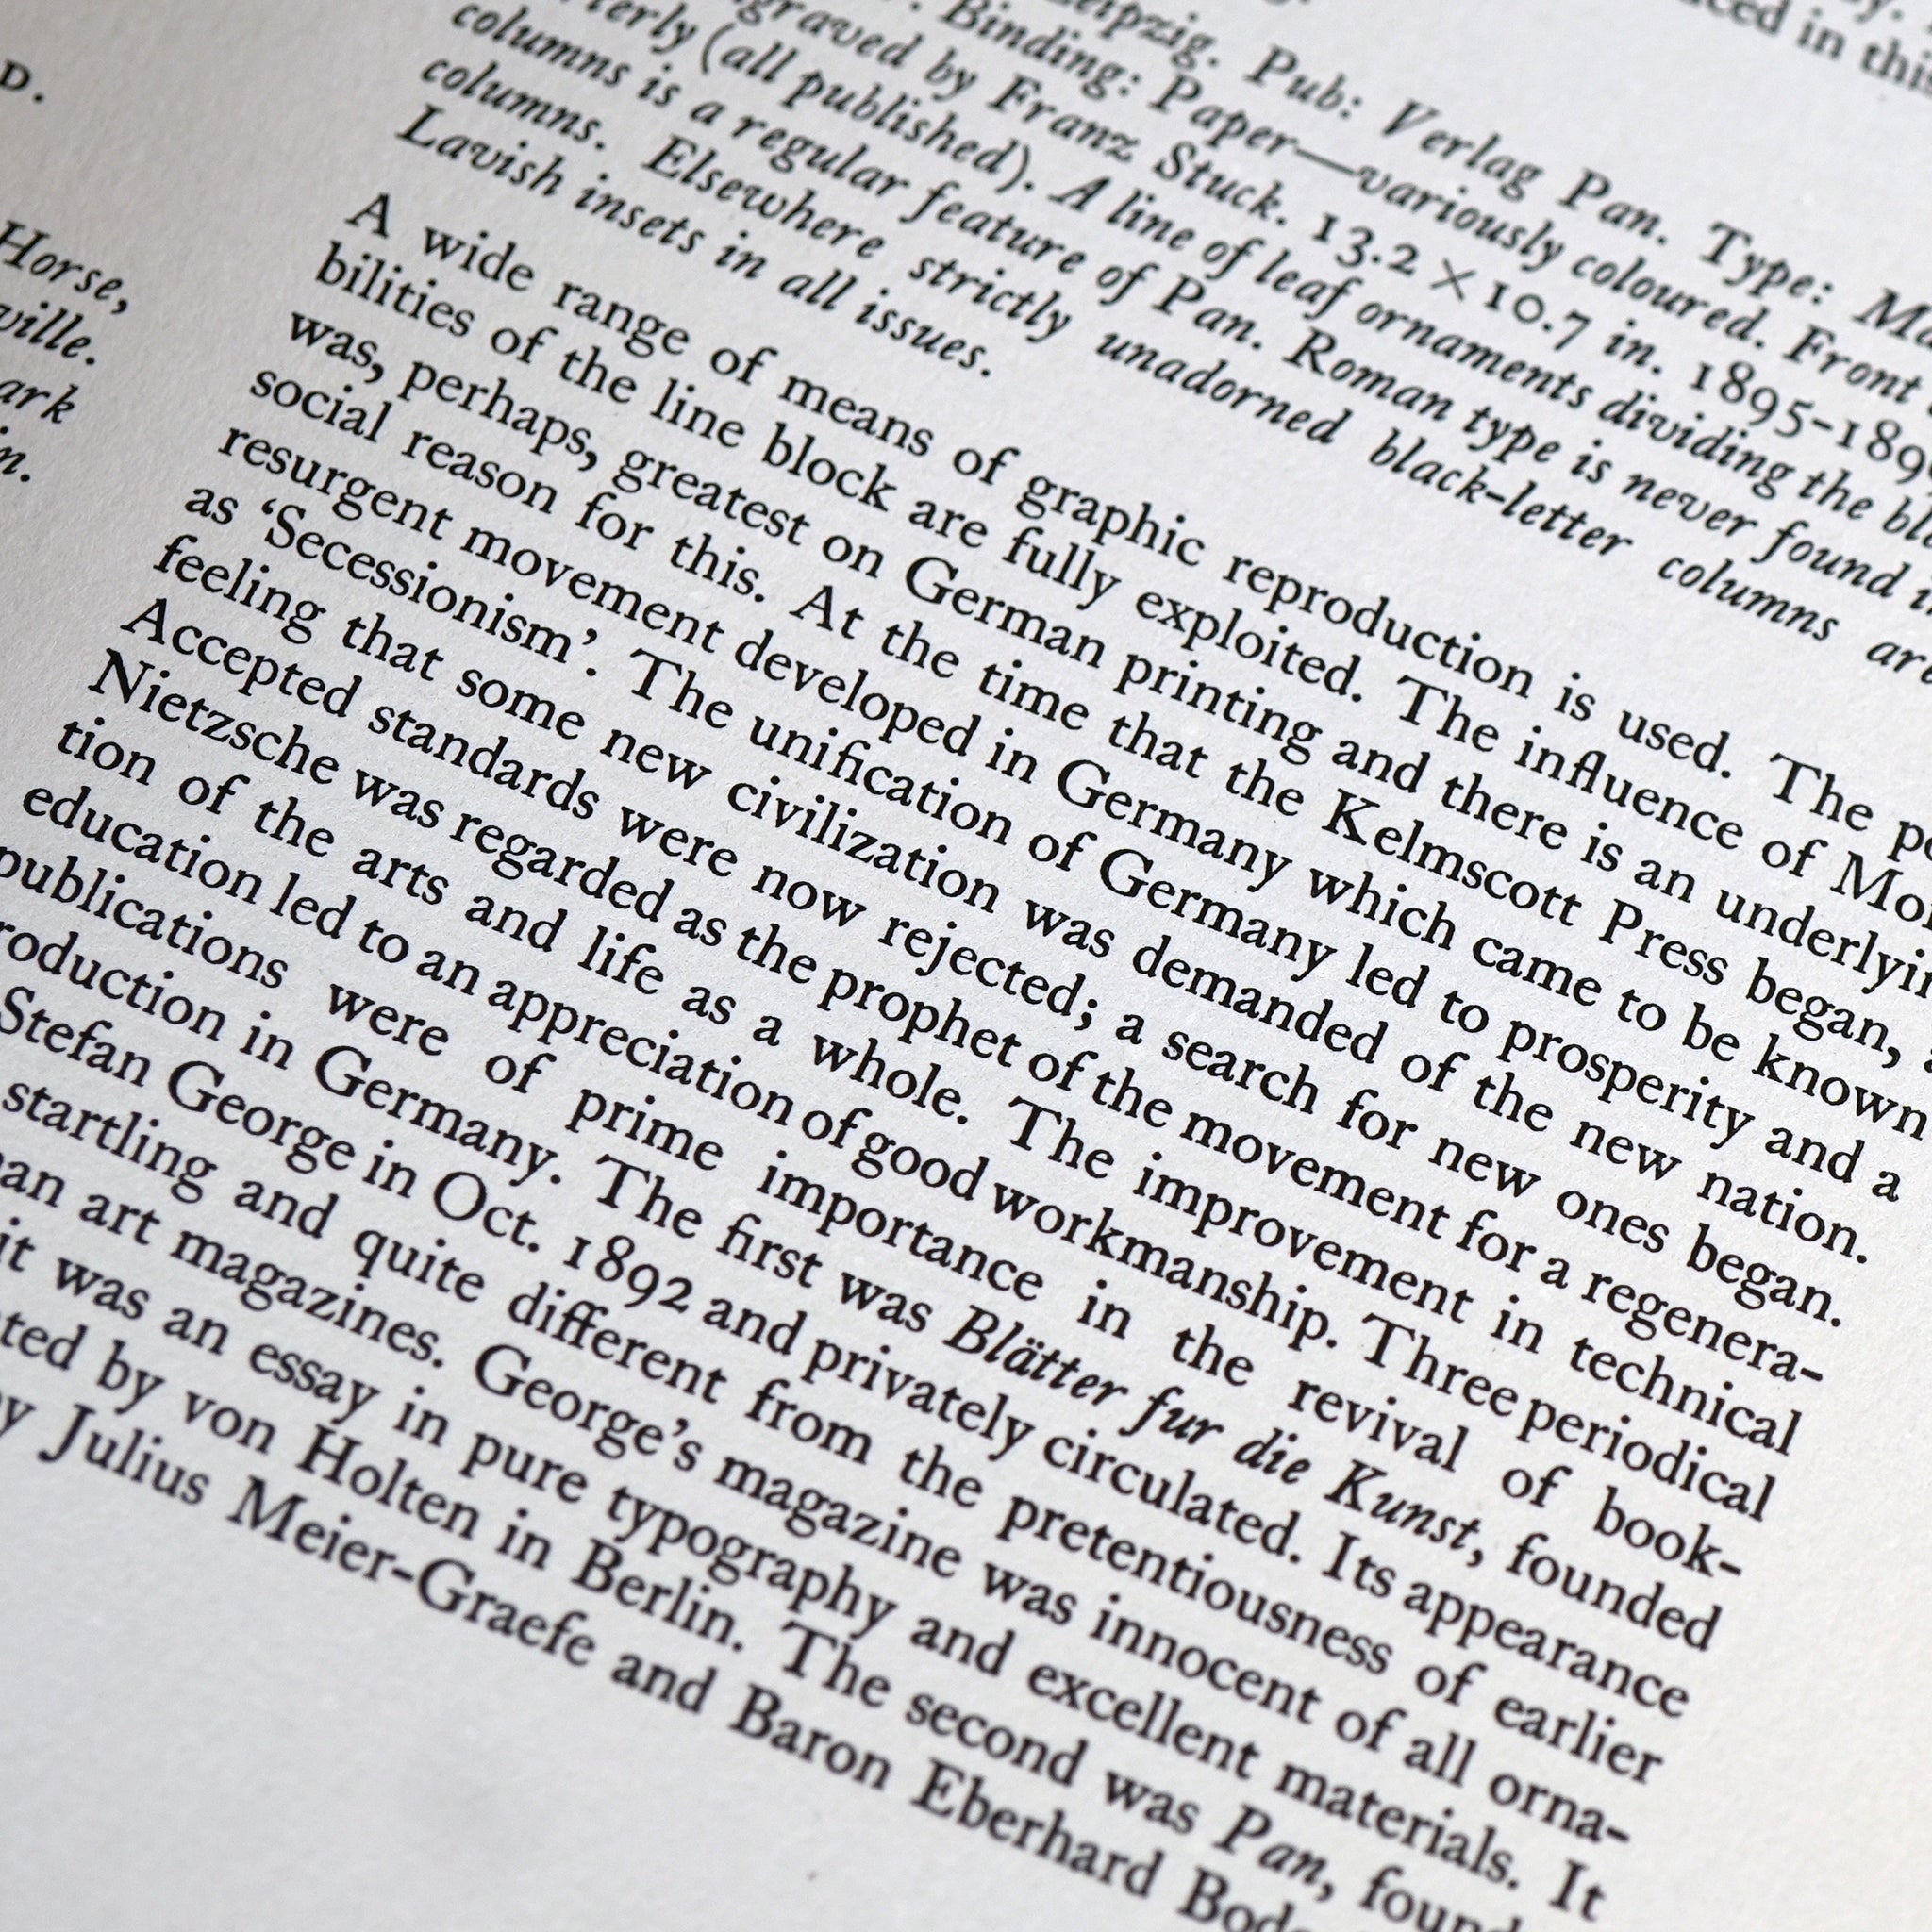 D.
Horse,
ville.
ark
n.
ced in this
Leipzig. Pub: Verlag Pan. Type:
graved by Franz Stuck. 13.2 × 10.7 in. 1895-189
Binding: Paper—variously coloured. Front
terly (all published). A line of leaf ornaments dividing the
columns is a regular feature of Pan. Roman type is never found
columns. Elsewhere strictly unadorned black-letter columns are
Lavish insets in all issues.
A wide range of means of graphic reproduction is used. The
bilities of the line block are fully exploited. The influence of
was, perhaps, greatest on German printing and there is an
social reason for this. At the time that the Kelmscott Press began,
resurgent movement developed in Germany which came to be known
as ‘Secessionism’. The unification of Germany led to prosperity and a
feeling that some new civilization was demanded of the new nation.
Accepted standards were now rejected; a search for new ones began.
Nietzsche was regarded as the prophet of the movement for a regenera-
tion of the arts and life as a whole. The improvement in technical
education led to an appreciation of good workmanship. Three periodical
publications were of prime importance in the revival of book-
roduction in Germany. The first was Blätter fur die Kunst, founded
Stefan George in Oct. 1892 and privately circulated. Its appearance
startling and quite different from the pretentiousness of earlier
an art magazines. George’s magazine was innocent of all orna-
it was an essay in pure typography and excellent materials. It
ted by von Holten in Berlin. The second was Pan,
y Julius Meier-Graefe and Baron Eberhard